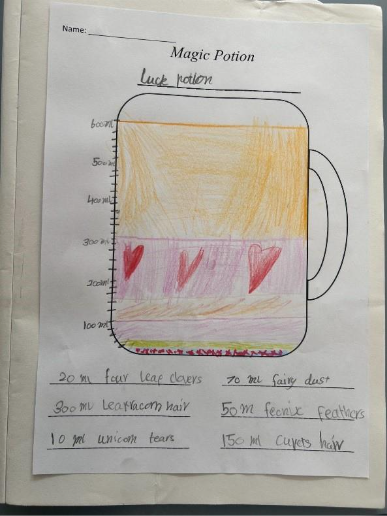 Name:
Magic Potion
Luck potion
600ml
500ml
400ml
300ml
200ml
100ml
20 ml four leaf clovers
70 ml fairy dust
300 ml hair
50 ml feonix feathers
10 ml unicorn tears
150 ml hair